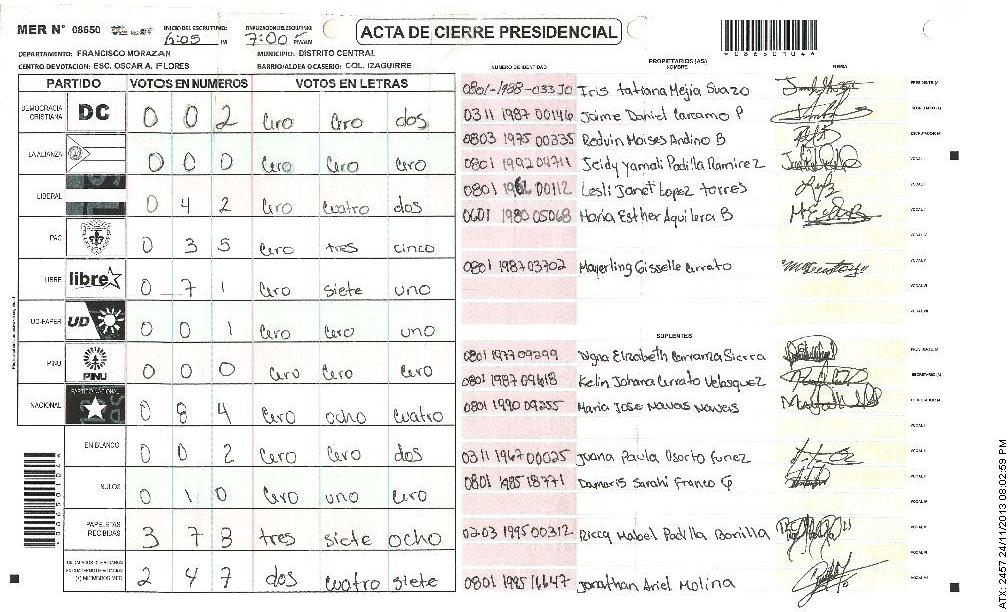 MER N° 08650 INICIO DEL ESCRUTINIO: 6:05 PM FINALIZACION DE ESCRUTINIO: 7:00 PM/AM
ACTA DE CIERRE PRESIDENCIAL
DEPARTAMENTO: FRANCISCO MORAZAN MUNICIPIO: DISTRITO CENTRAL
CENTRO DE VOTACION: ESC. OSCAR A. FLORES BARRIO/ALDEA O CASERIO: COL. IZAGUIRRE
PARTIDO VOTOS EN NUMEROS VOTOS EN LETRAS
DEMOCRACIA CRISTIANA DC 0 0 2 cero cero dos
LA ALIANZA 0 0 0 cero cero cero
LIBERAL 0 4 2 cero cuatro dos
PAC 0 3 5 cero tres cinco
LIBRE libre 0 7 1 cero siete uno
UD-FAPER UD 0 0 1 cero cero uno
PINU PINU 0 0 0 cero cero cero
NACIONAL PARTIDO NACIONAL 0 8 4 cero ocho cuatro
EN BLANCO 0 0 2 cero cero dos
NULOS 0 1 0 cero uno cero
PAPELETAS RECIBIDAS 3 7 8 tres siete ocho
(+) MIEMBROS MER 2 4 7 dos cuatro siete
PROPIETARIOS (AS)
NUMERO DE IDENTIDAD NOMBRE FIRMA
0801-1988-03330 Iris Tatiana Mejia Suazo PRESIDENTE (A)
0311 1987 00146 Jaime Daniel Carcamo P SECRETARIO (A)
0803 1975 00335 Redvin Moises Andino B ESCRUTADOR (A)
0801 1992 04711 Jeidy Yamali Padilla Ramirez VOCAL I
0801 1962 00112 Lesli Janet Lopez Torres VOCAL II
0601 1980 05068 Maria Esther Aguilera B VOCAL III
VOCAL IV
0801 1987 03702 Mayerling Gisselle Cerrato VOCAL V
VOCAL VI
VOCAL VII
SUPLENTES
0801 1977 09299 Digna Elizabeth Carranza Sierra PRESIDENTE (A)
0801 1987 09618 Kelin Johana Cerrato Velasquez SECRETARIO (A)
0801 1990 09255 Maria Jose Navas Navas ESCRUTADOR (A)
VOCAL I
0311 1967 00025 Juana Paula Osorto Funez VOCAL II
0801 1985 18771 Damaris Sarahi Franco G VOCAL III
VOCAL IV
0203 1995 00312 Riccy Mabel Padilla Bonilla VOCAL V
VOCAL VI
0801 1985 16647 Jonathan Ariel Molina VOCAL VII
ATX: 2457 24/11/2013 08:02:59 PM